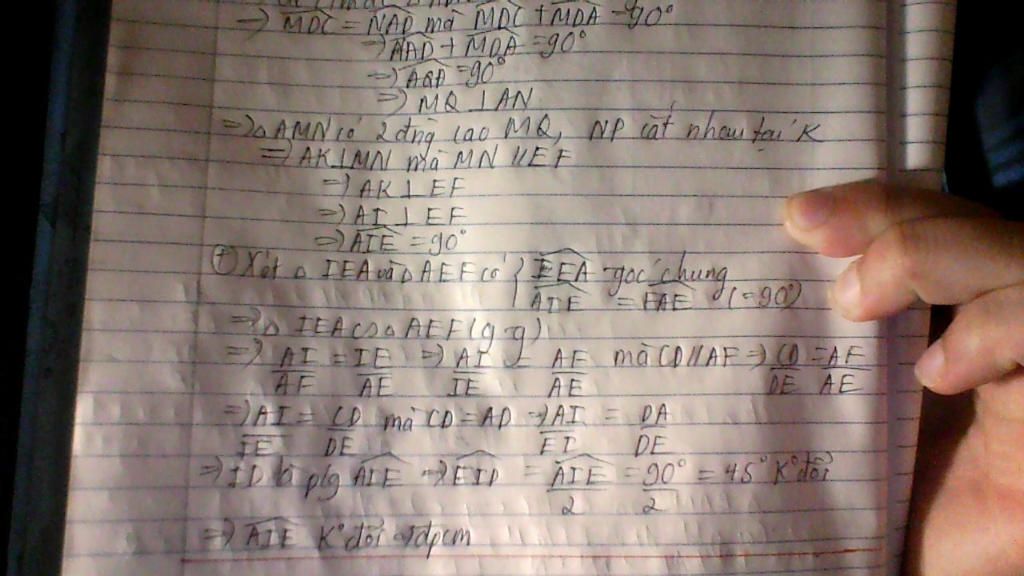 => MDC = NAD mà MDC + MDA = 90°
=> AAD + MDA = 90°
=> AQD = 90°
=> MQ ⊥ AN
=> △ AMN có 2 đng cao MQ, NP cắt nhau tại K
=> AK ⊥ MN mà MN // EF
=> AK ⊥ EF
=> AI ⊥ EF
=> AIE = 90°
+) Xét △ IEA và △ AEF có { IEA góc chung
AIE = FAE (= 90°)
=> △ IEA ∽ △ AEF (g-g)
=> AI/AF = IE/AE => AI/IE = AF/AE mà CD // AF => CD/DE = AF/AE
=> AI/IE = CD/DE mà CD = AD => AI/EI = DA/DE
=> ID là p/g AIE => EID = AIE/2 = 90°/2 = 45° K° đổi
=> AIE K° đổi => đpcm